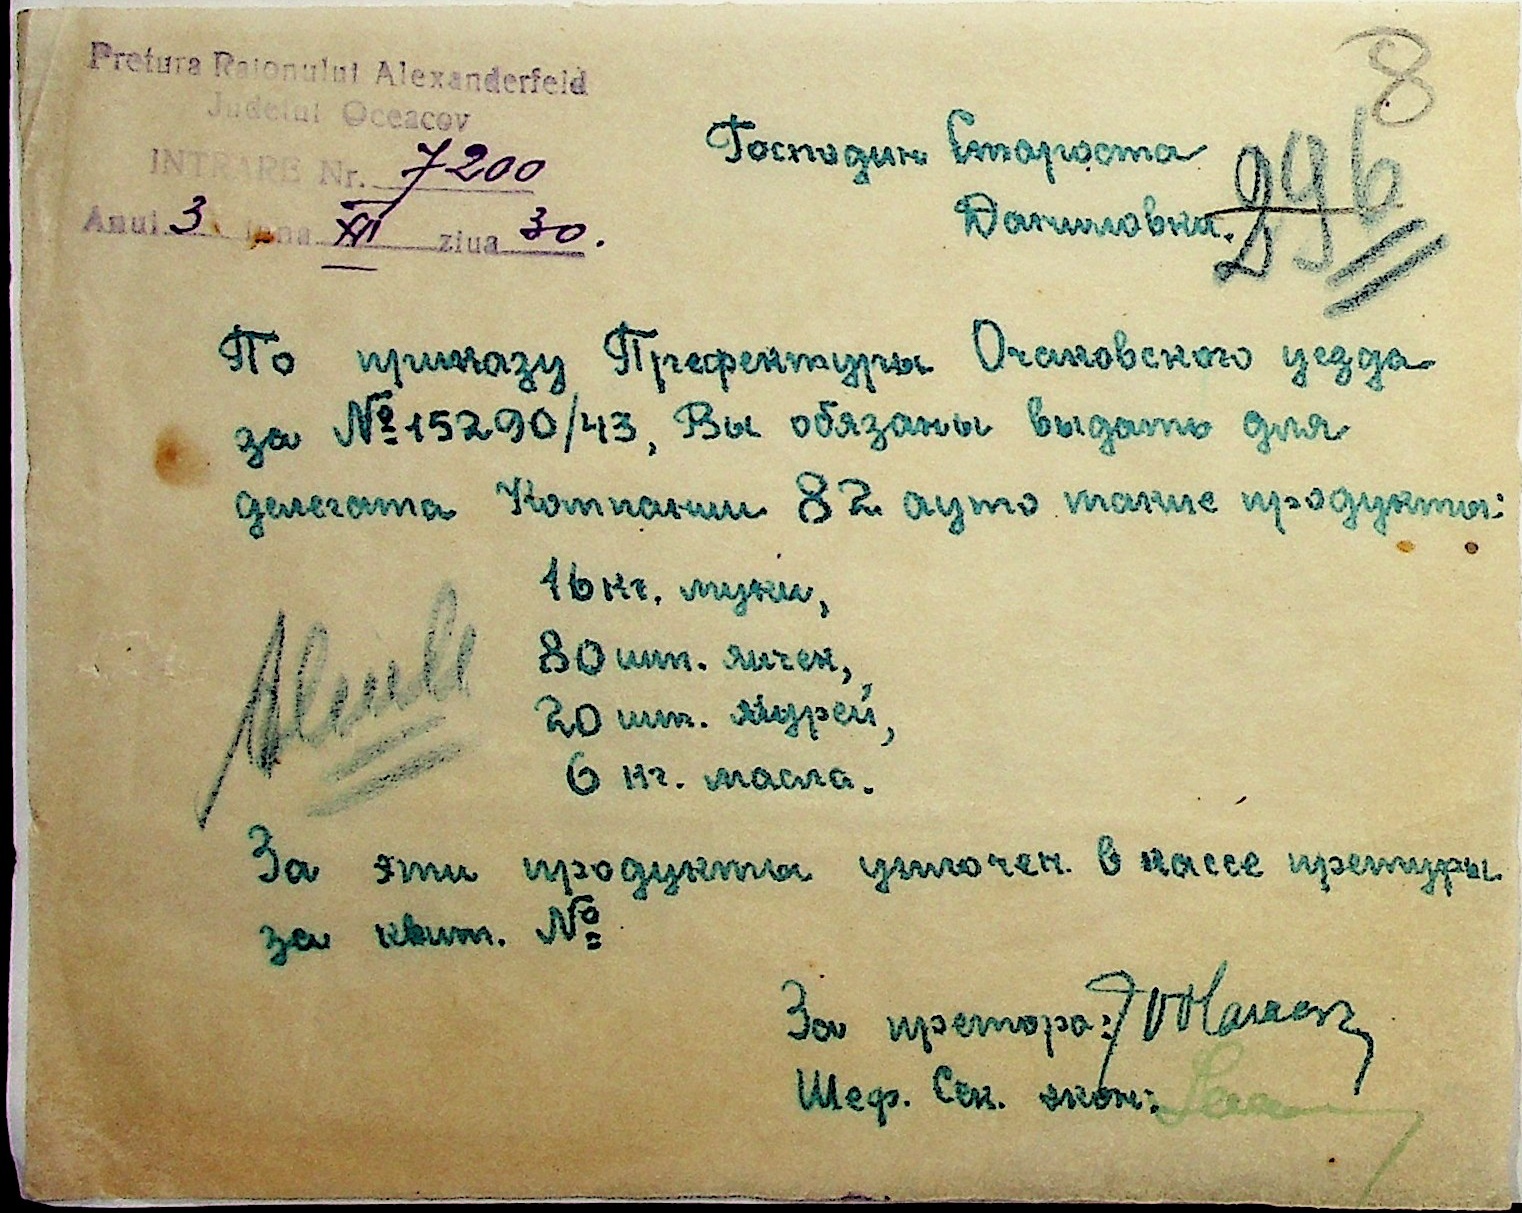 8
Pretura Raionului Alexanderfeld
Judetul Oceacov
INTRARE Nr. 7200
Anul 3 luna XI ziua 30.
Господин Староста
Даниловки.
296
По приказу Префектуры Очаковского уезда
за № 15290/43, Вы обязаны выдать для
делегата Компании 82 ауто такие продукты:
16 кг. муки,
80 шт. яичек,
20 шт. курей,
6 кг. масла.
За эти продукты уплочен. в кассе претуры
за квит. №
За претора:
Шеф. Сек. экон: